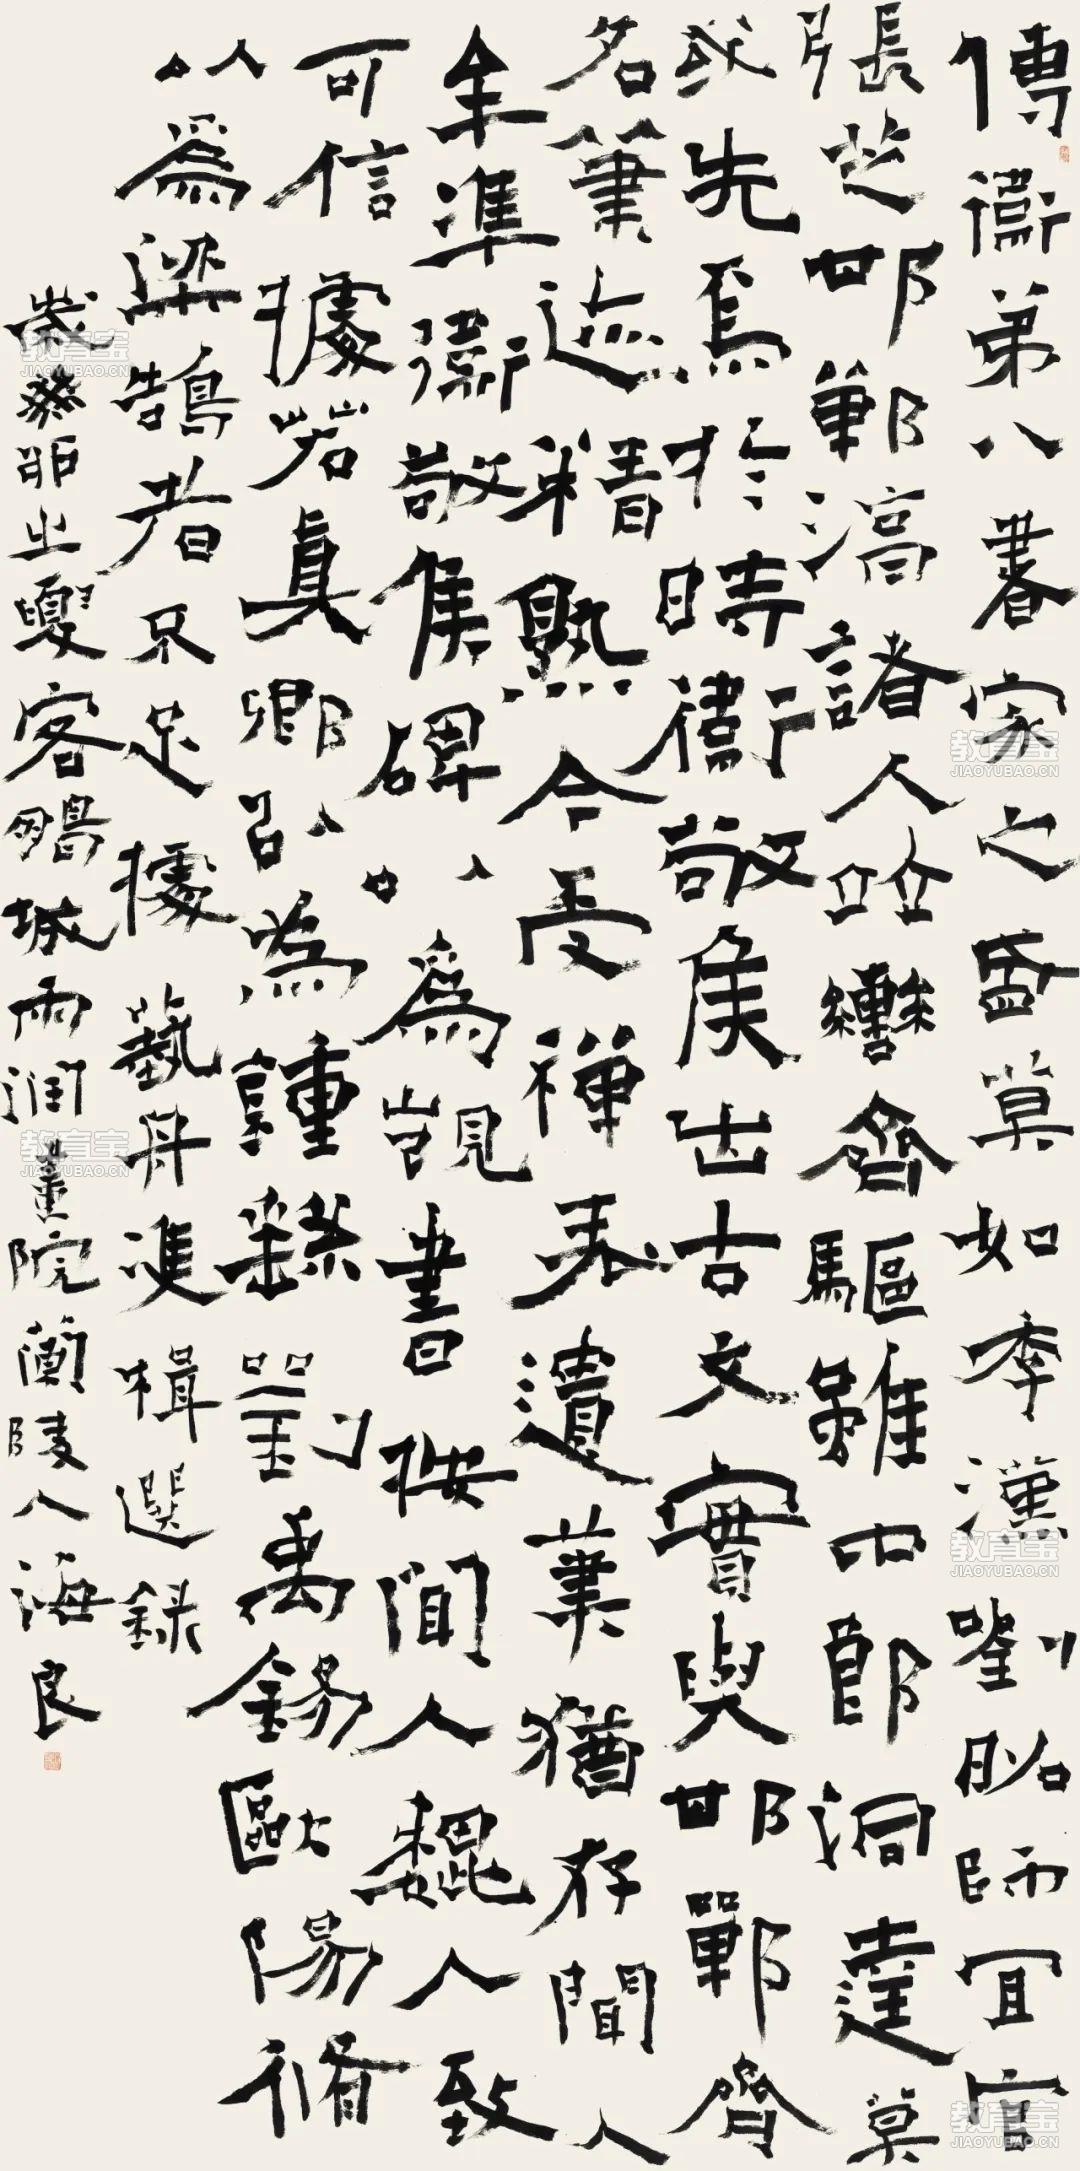 傳衞弟八書家之盛莫如季漢劉師宜官
張芝邯鄲淳諸人並轡齊驅雖中郎洞達莫
或先焉於時衞敬侯出古文實與邯鄲齊
名筆迹精熟今受禪表遺筆猶存聞人
牟準衞敬侯碑以為覬書按聞人魏人致
可信據若真卿以為鍾繇劉禹錫歐陽脩
以為梁鵠者不足據藝舟雙楫選錄
歲癸卯之夏客鵬城雨潤院蘭陵人海良
教育宝
JIAOYUBAO.CN
教育宝
JIAOYUBAO.CN
教育宝
JIAOYUBAO.CN
教育宝
JIAOYUBAO.CN
教育宝
JIAOYUBAO.CN